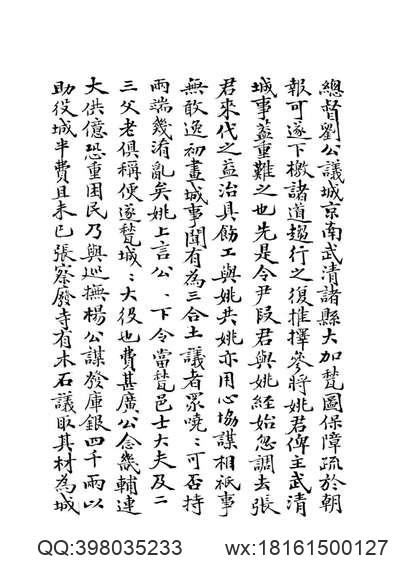 總督劉公議城京南武清諸縣大加甃圖保障疏於朝
報可遂下檄諸道趨行之復推擇參將姚君俾主武清
城事葢重難之也先是令尹段君與姚經始怱調去張
君來代之益治具飭工與姚共姚亦用心協謀相祇事
無敢逸初畫城事聞有為三合土議者眾嘵〻可否持
兩端幾淆亂矣姚上言公〻下令當甃邑士大夫及二
三父老俱稱便遂甃城〻大役也費甚廣公念畿輔連
大供億恐重困民乃與巡撫楊公謀發庫銀四千兩以
助役城半費且未已張察廢寺有木石議取其材為城
QQ:398035233 wx:18161500127